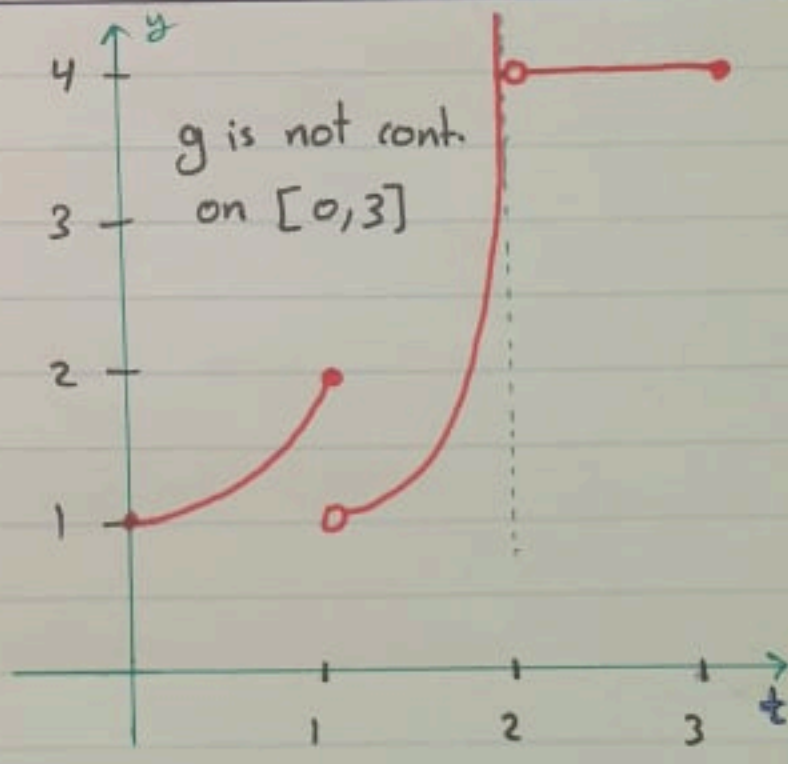 y
4
g is not cont.
on [0,3]
3
2
1
1 2 3 t